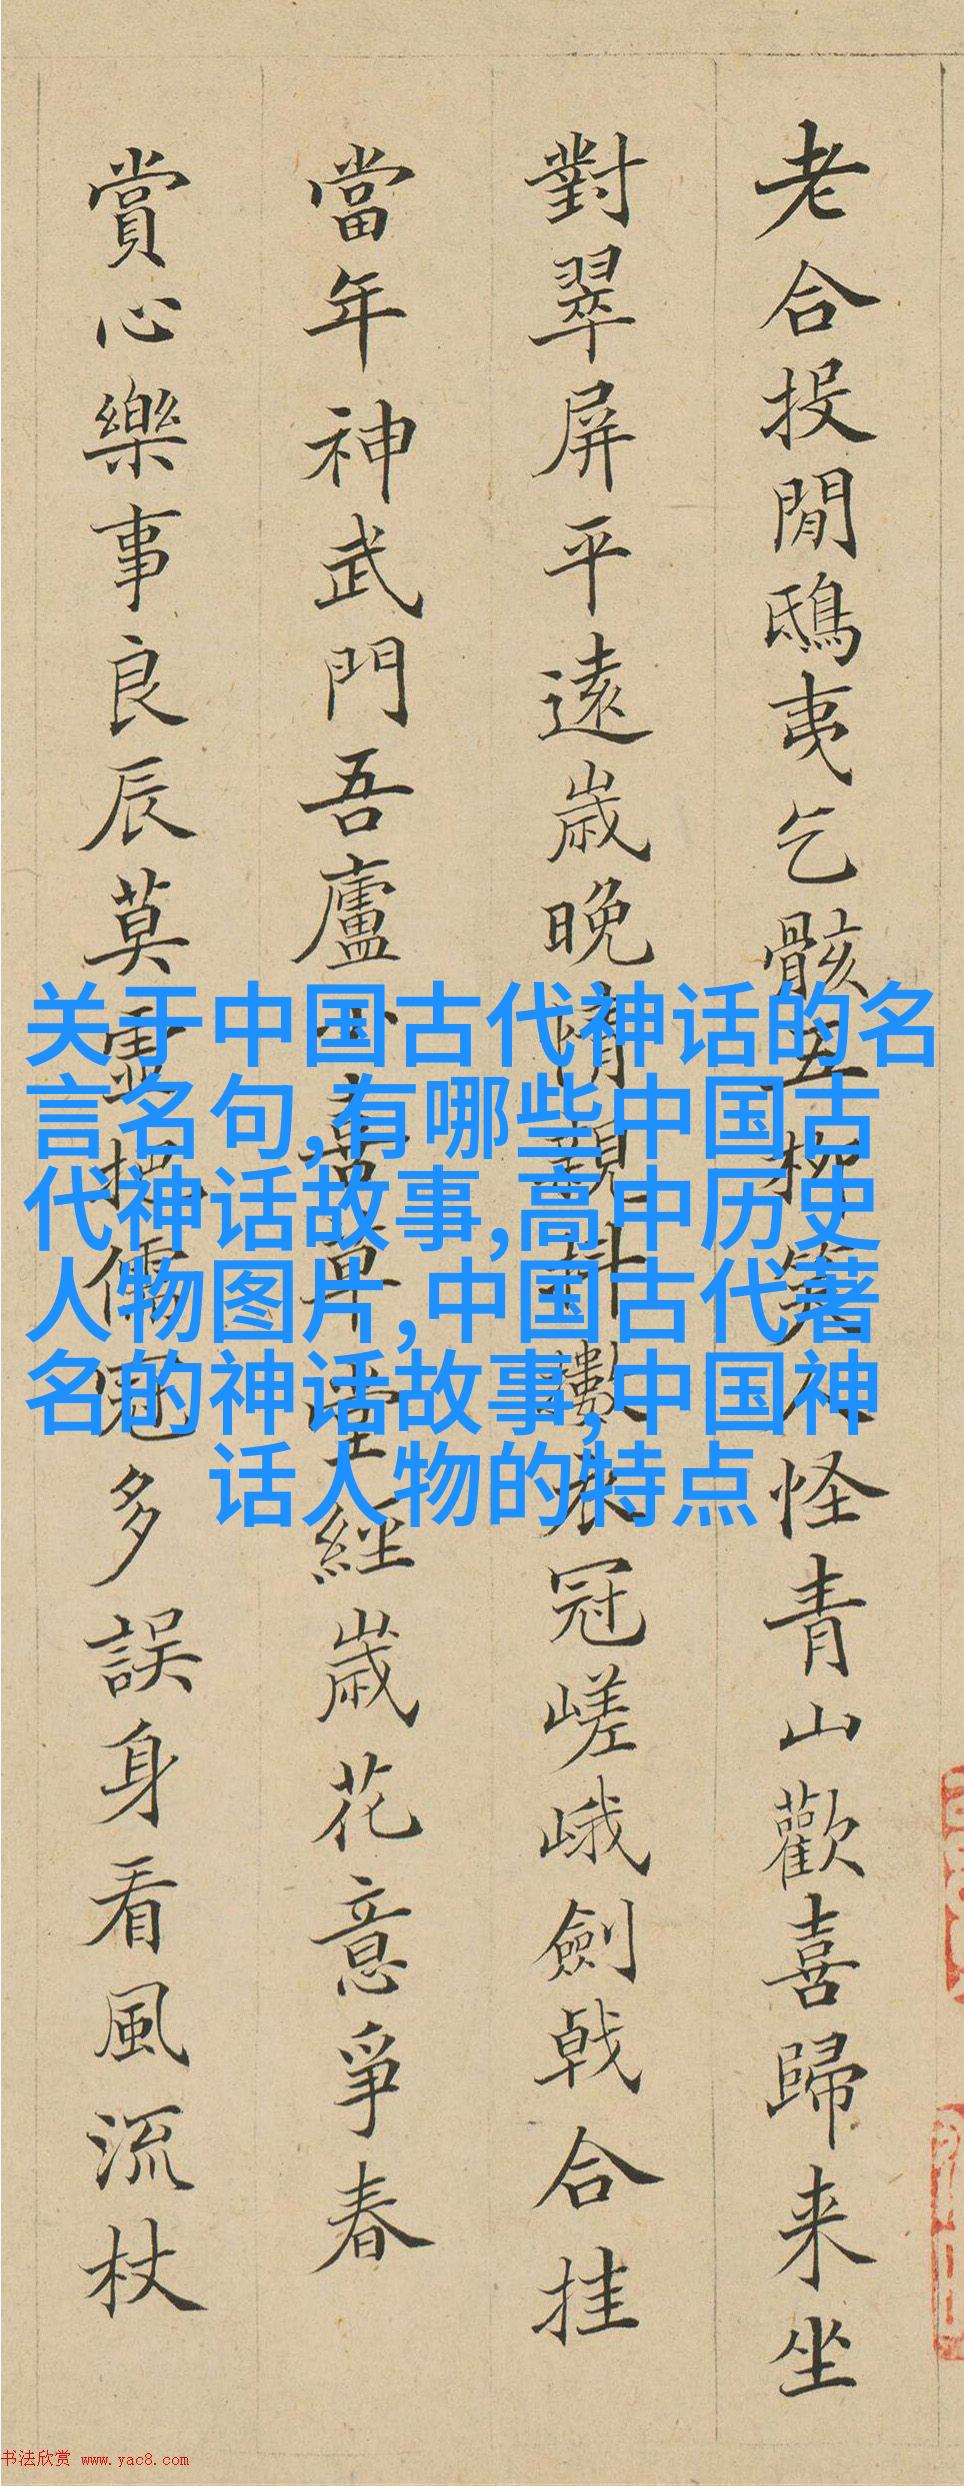 老合投閒鴟夷乞骸五柳笑人怪青山歡喜歸来坐
對翠屏平遠歲晚情親數衣冠嵯峨劍戟合挂
當年神武門吾廬草堂經歲花意爭春
賞心樂事良辰莫虛拋儒冠多誤身看風流杖
关于中国古代神话的名
言名句,有哪些中国古
代神话故事,高中历史
人物图片,中国古代著
名的神话故事,中国神
话人物的特点
书法欣赏 www.yac8.com